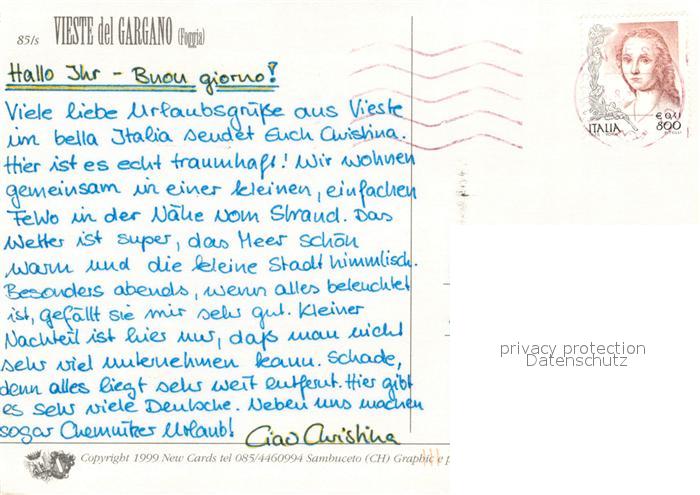 85/s VIESTE del GARGANO (Foggia)
Hallo Ihr - Buon giorno!
Viele liebe Urlaubsgrüße aus Vieste
im bella Italia sendet Euch Christina.
Hier ist es echt traumhaft! Wir wohnen
gemeinsam in einer kleinen, einfachen
FeWo in der Nähe vom Strand. Das
Wetter ist super, das Meer schön
warm und die kleine Stadt himmlisch.
Besonders abends, wenn alles beleuchtet
ist, gefällt sie mir sehr gut. Kleiner
Nachteil ist hier nur, daß man nicht
sehr viel unternehmen kann. Schade,
denn alles liegt sehr weit entfernt. Hier gibt
es sehr viele Deutsche. Neben uns machen
sogar Chemnitzer Urlaub!
Ciao Christina
Copyright 1999 New Cards tel 085/4460994 Sambuceto (CH) Graphic e p
ITALIA
€ 0,41
800
privacy protection
Datenschutz